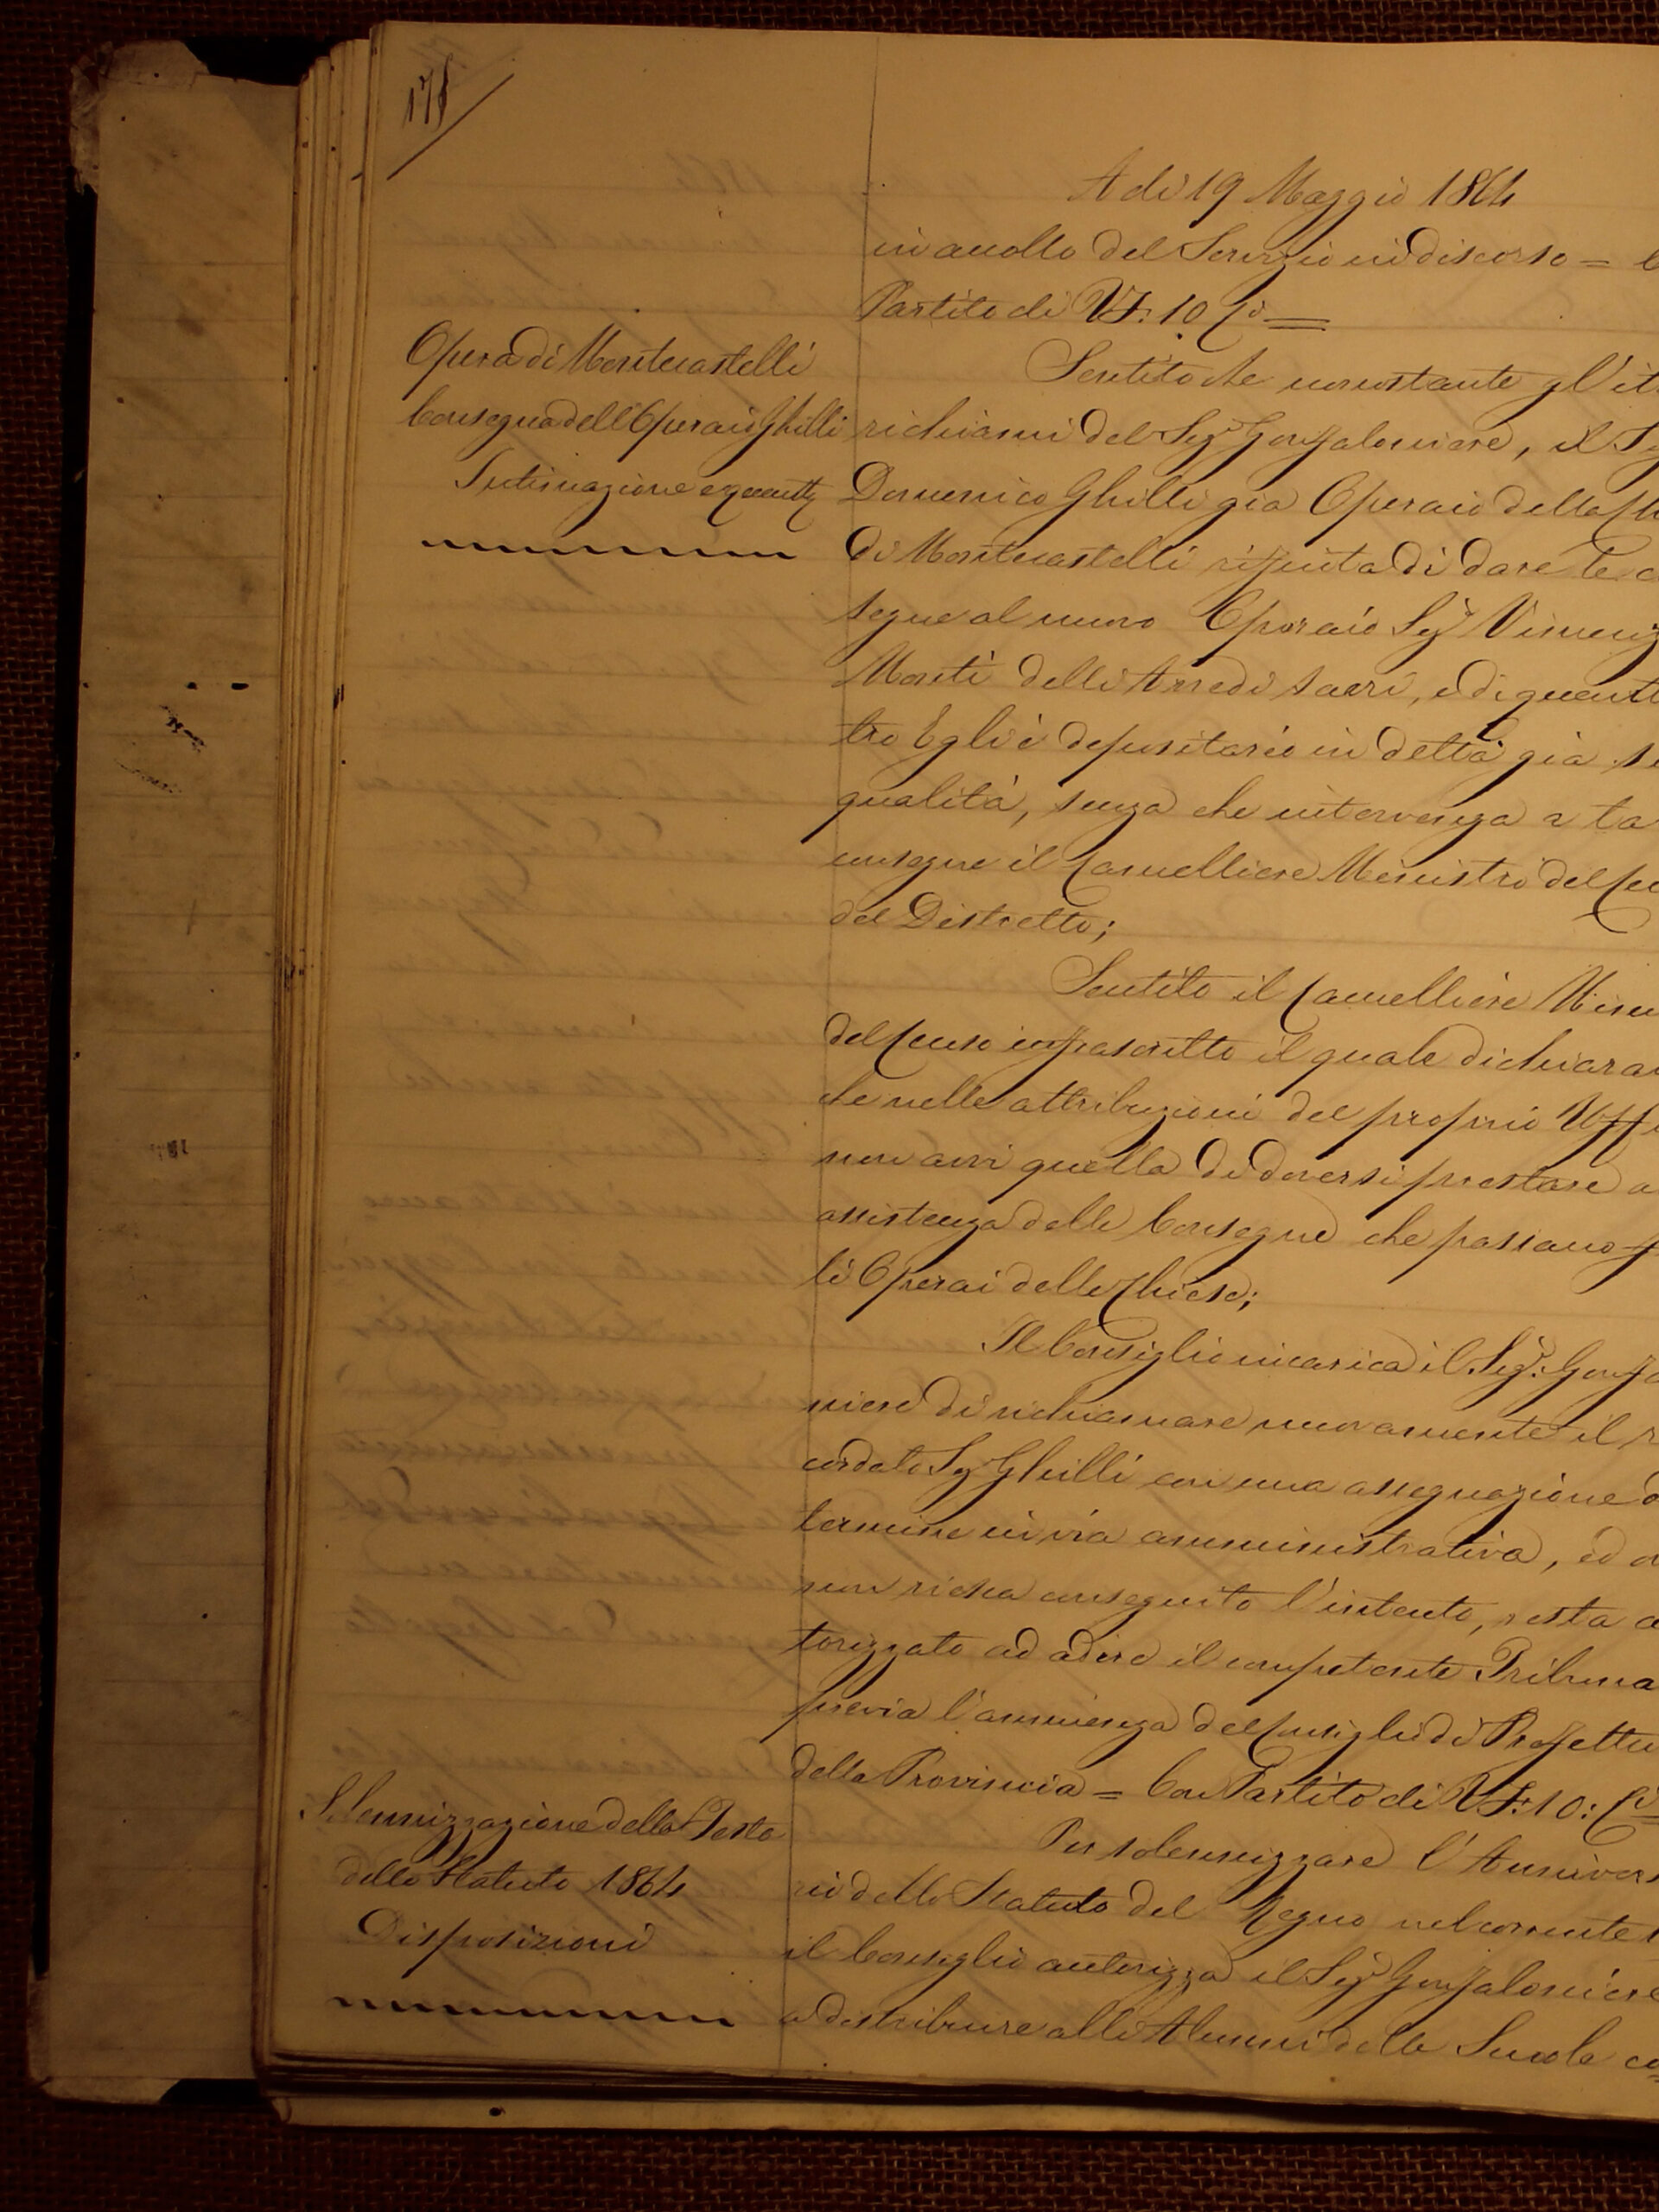 178
A di 19 Maggio 1864
in accollo del Servizio in discorso =
Partito di VF: 10 Ci =
Opera di Montecastelli
Consegna dell'Operaio Ghilli
Intimazione
Sentito che nonostante gl'it
richiami del Sigr Gonfaloniere, il Sig
Domenico Ghilli già Operaio della Ch
di Montecastelli rifiuta di dare le c
segne al nuovo Operaio Sigr Vincenz
Monti delli Arredi sacri, e di quant
tro Egli è depositario in detta già s
qualità, senza che intervenga a ta
consegne il Cancelliere Ministro del Ce
del Distretto;
Sentito il Cancelliere Minis
del Censo infrascritto il quale dichiara
che nelle attribuzioni del proprio Uffi
non avvi quella di doversi prestare a
assistenza delle Consegne che passano f
li Operai delle Chiese;
Il Consiglio incarica il Sigr: Gonfa
niere di richiamare nuovamente il r
cordato Sigr Ghilli con una assegnazione d
termine in via amministrativa, ed o
non riesca conseguito l'intento, resta a
torizzato ad adire il competente Tribuna
previa l'annuenza del Consiglio di Prefettu
della Provincia = Con Partito di VF: 10: Ci =
Solennizzazione della Festa
dello Statuto 1864
Disposizioni
Per solennizzare l'Anniversa
rio dello Statuto del Regno nel corrente
il Consiglio autorizza il Sigr Gonfaloniere
a distribuire alli Alunni delle Scuole co